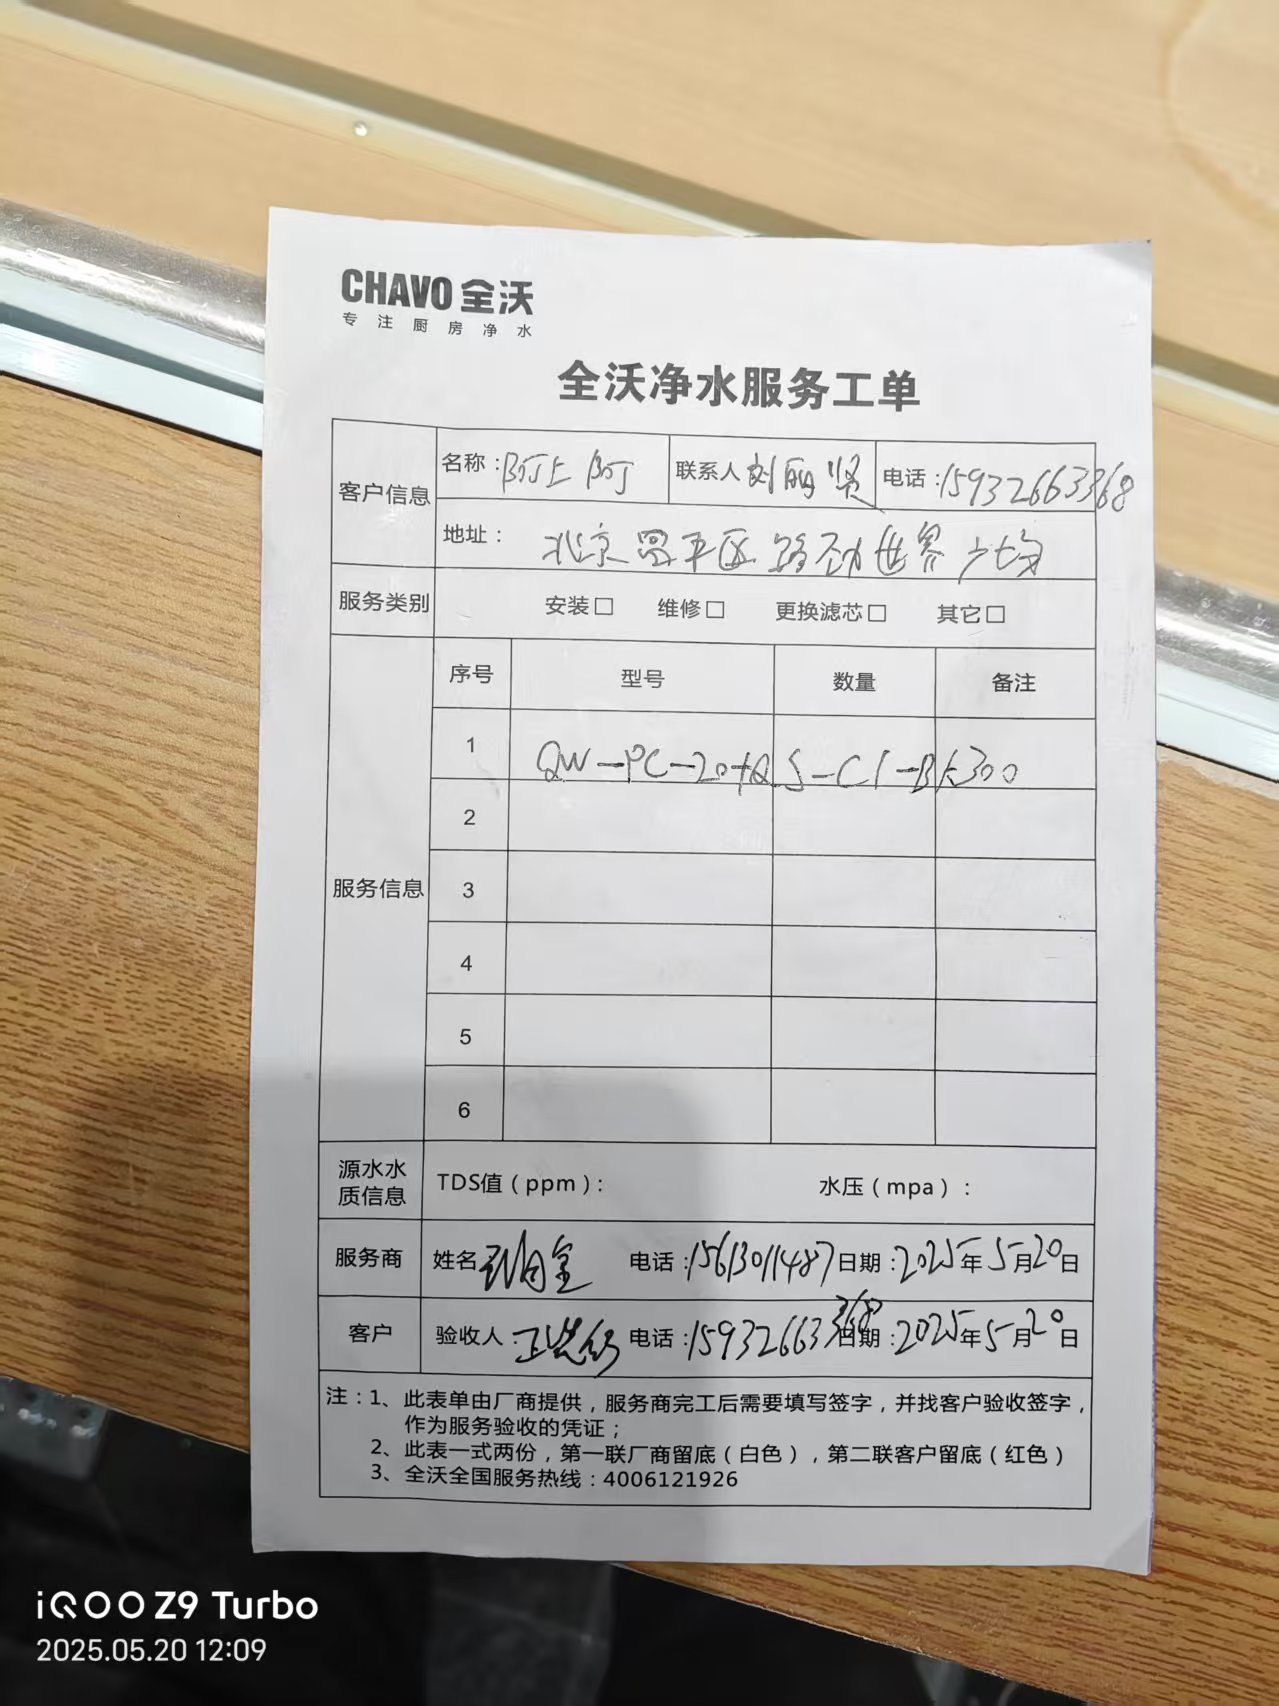 CHAVO 全沃
专注厨房净水
全沃净水服务工单
客户信息 名称：阿上阿 联系人 刘丽贤 电话：15932663368
地址： 北京昌平区路劲世界广场
服务类别 安装□ 维修□ 更换滤芯□ 其它□
服务信息 序号 型号 数量 备注
1 QW-PC-20+QS-C1-BK300
2
3
4
5
6
源水水质信息 TDS值（ppm）： 水压（mpa）：
服务商 姓名 电话：15613011487 日期：2025年5月20日
客户 验收人： 电话：15932663368 日期：2025年5月20日
注：1、此表单由厂商提供，服务商完工后需要填写签字，并找客户验收签字，
作为服务验收的凭证；
2、此表一式两份，第一联厂商留底（白色），第二联客户留底（红色）
3、全沃全国服务热线：4006121926
iQOO Z9 Turbo
2025.05.20 12:09